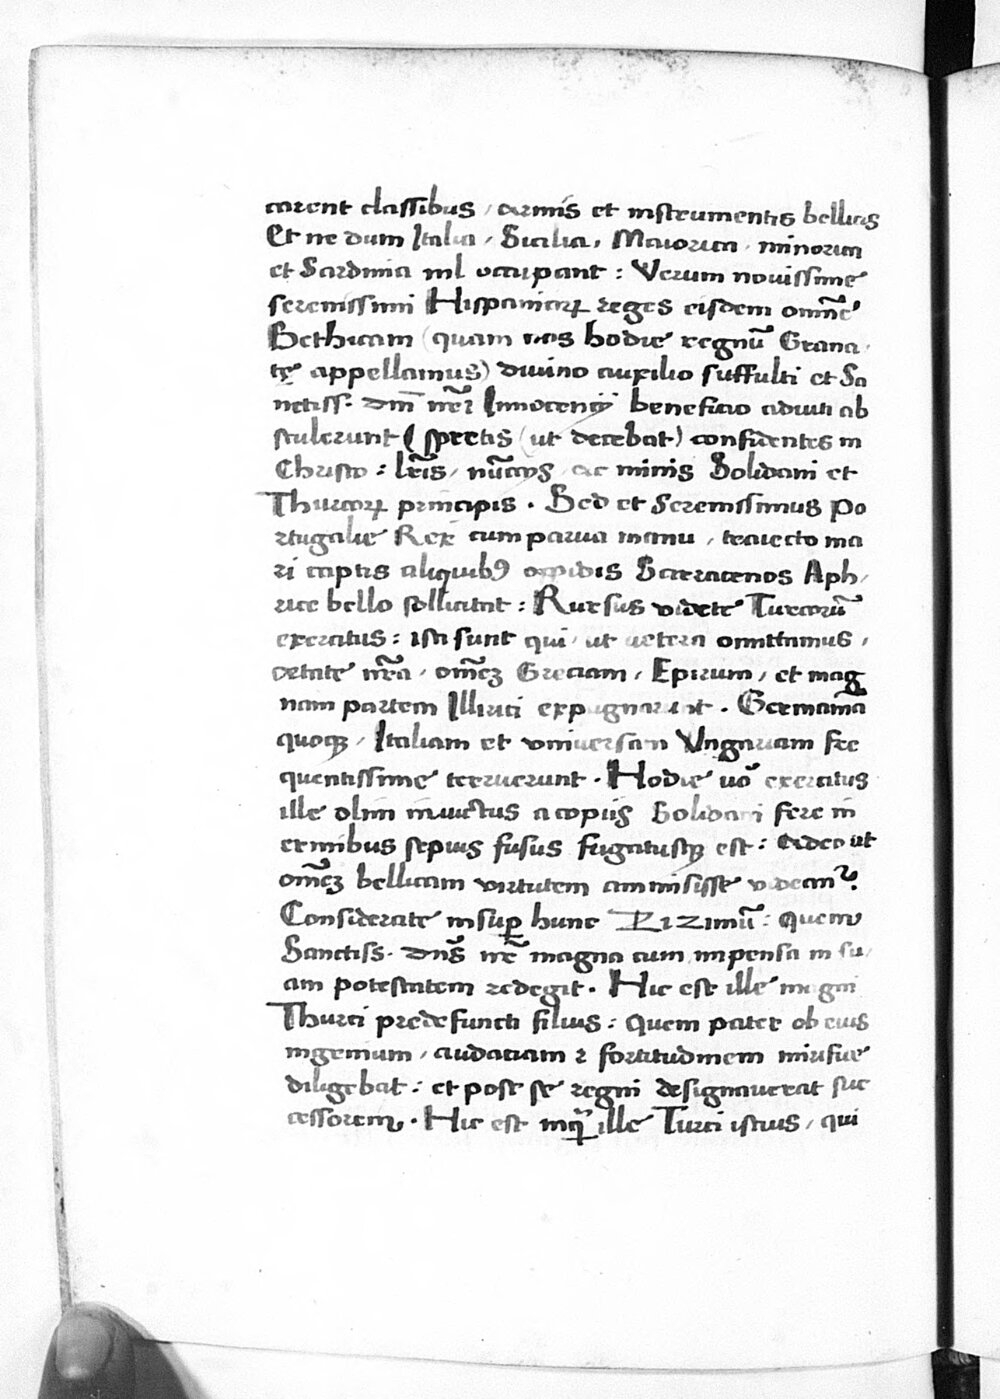 carent classibus, armis et instrumentis bellicis
Et ne dum Italia, Sicilia, Maiorica, minorica
et Sardinia nil occupant: Verum novissime
serenissimi Hispaniarꝝ reges eisdem omnē
Bethicam (quam nos hodie regnū Grana,
tę appellamus) divino auxilio suffulti et Sa
nctiss. dm̄ nr̃i Innocencij beneficio adiuti ab
stulerunt (spretis (ut decebat) confidentes in
Christo: lr̃is, nūccijs, ac minis Solidani et
Thurcorꝝ principis. Sed et Serenissimus Po
rtugalie Rex cum parva manu, traiecto ma
ri captis aliquibꝰ opidis Sarracenos Aph,
rice bello sollicitat: Rursus videte Turcorū
exercitus: isti sunt qui, ut cetera omittamus,
cetate nr̃a, omēꝫ Greciam, Epirum, et mag
nam partem Illirici expugnarunt. Germaniā
quoqꝫ, Italiam et universam Vngariam fre
quentissime terruerunt. Hodie uō exercitus
ille olim invictus a copijs Solidani fere in
ermibus sepius fusus fugatusqꝫ est: Adeo ut
omēꝫ bellicam virtutem ammisisse videant᷑.
Considerate insuꝑ hunc Zizimū: Quem
Sanctiss. dn̄s nr̃ magna cum impensa in su,
am potestatem redegit. Hic est ille magni
Thurci predefuncti filius: Quem pater ob eius
ingenium, audatiam ⁊ fortitudinem mirifice
diligebat: et post se regni designaverat suc
cessorem. Hic est inq̃ ille Turci istius, qui